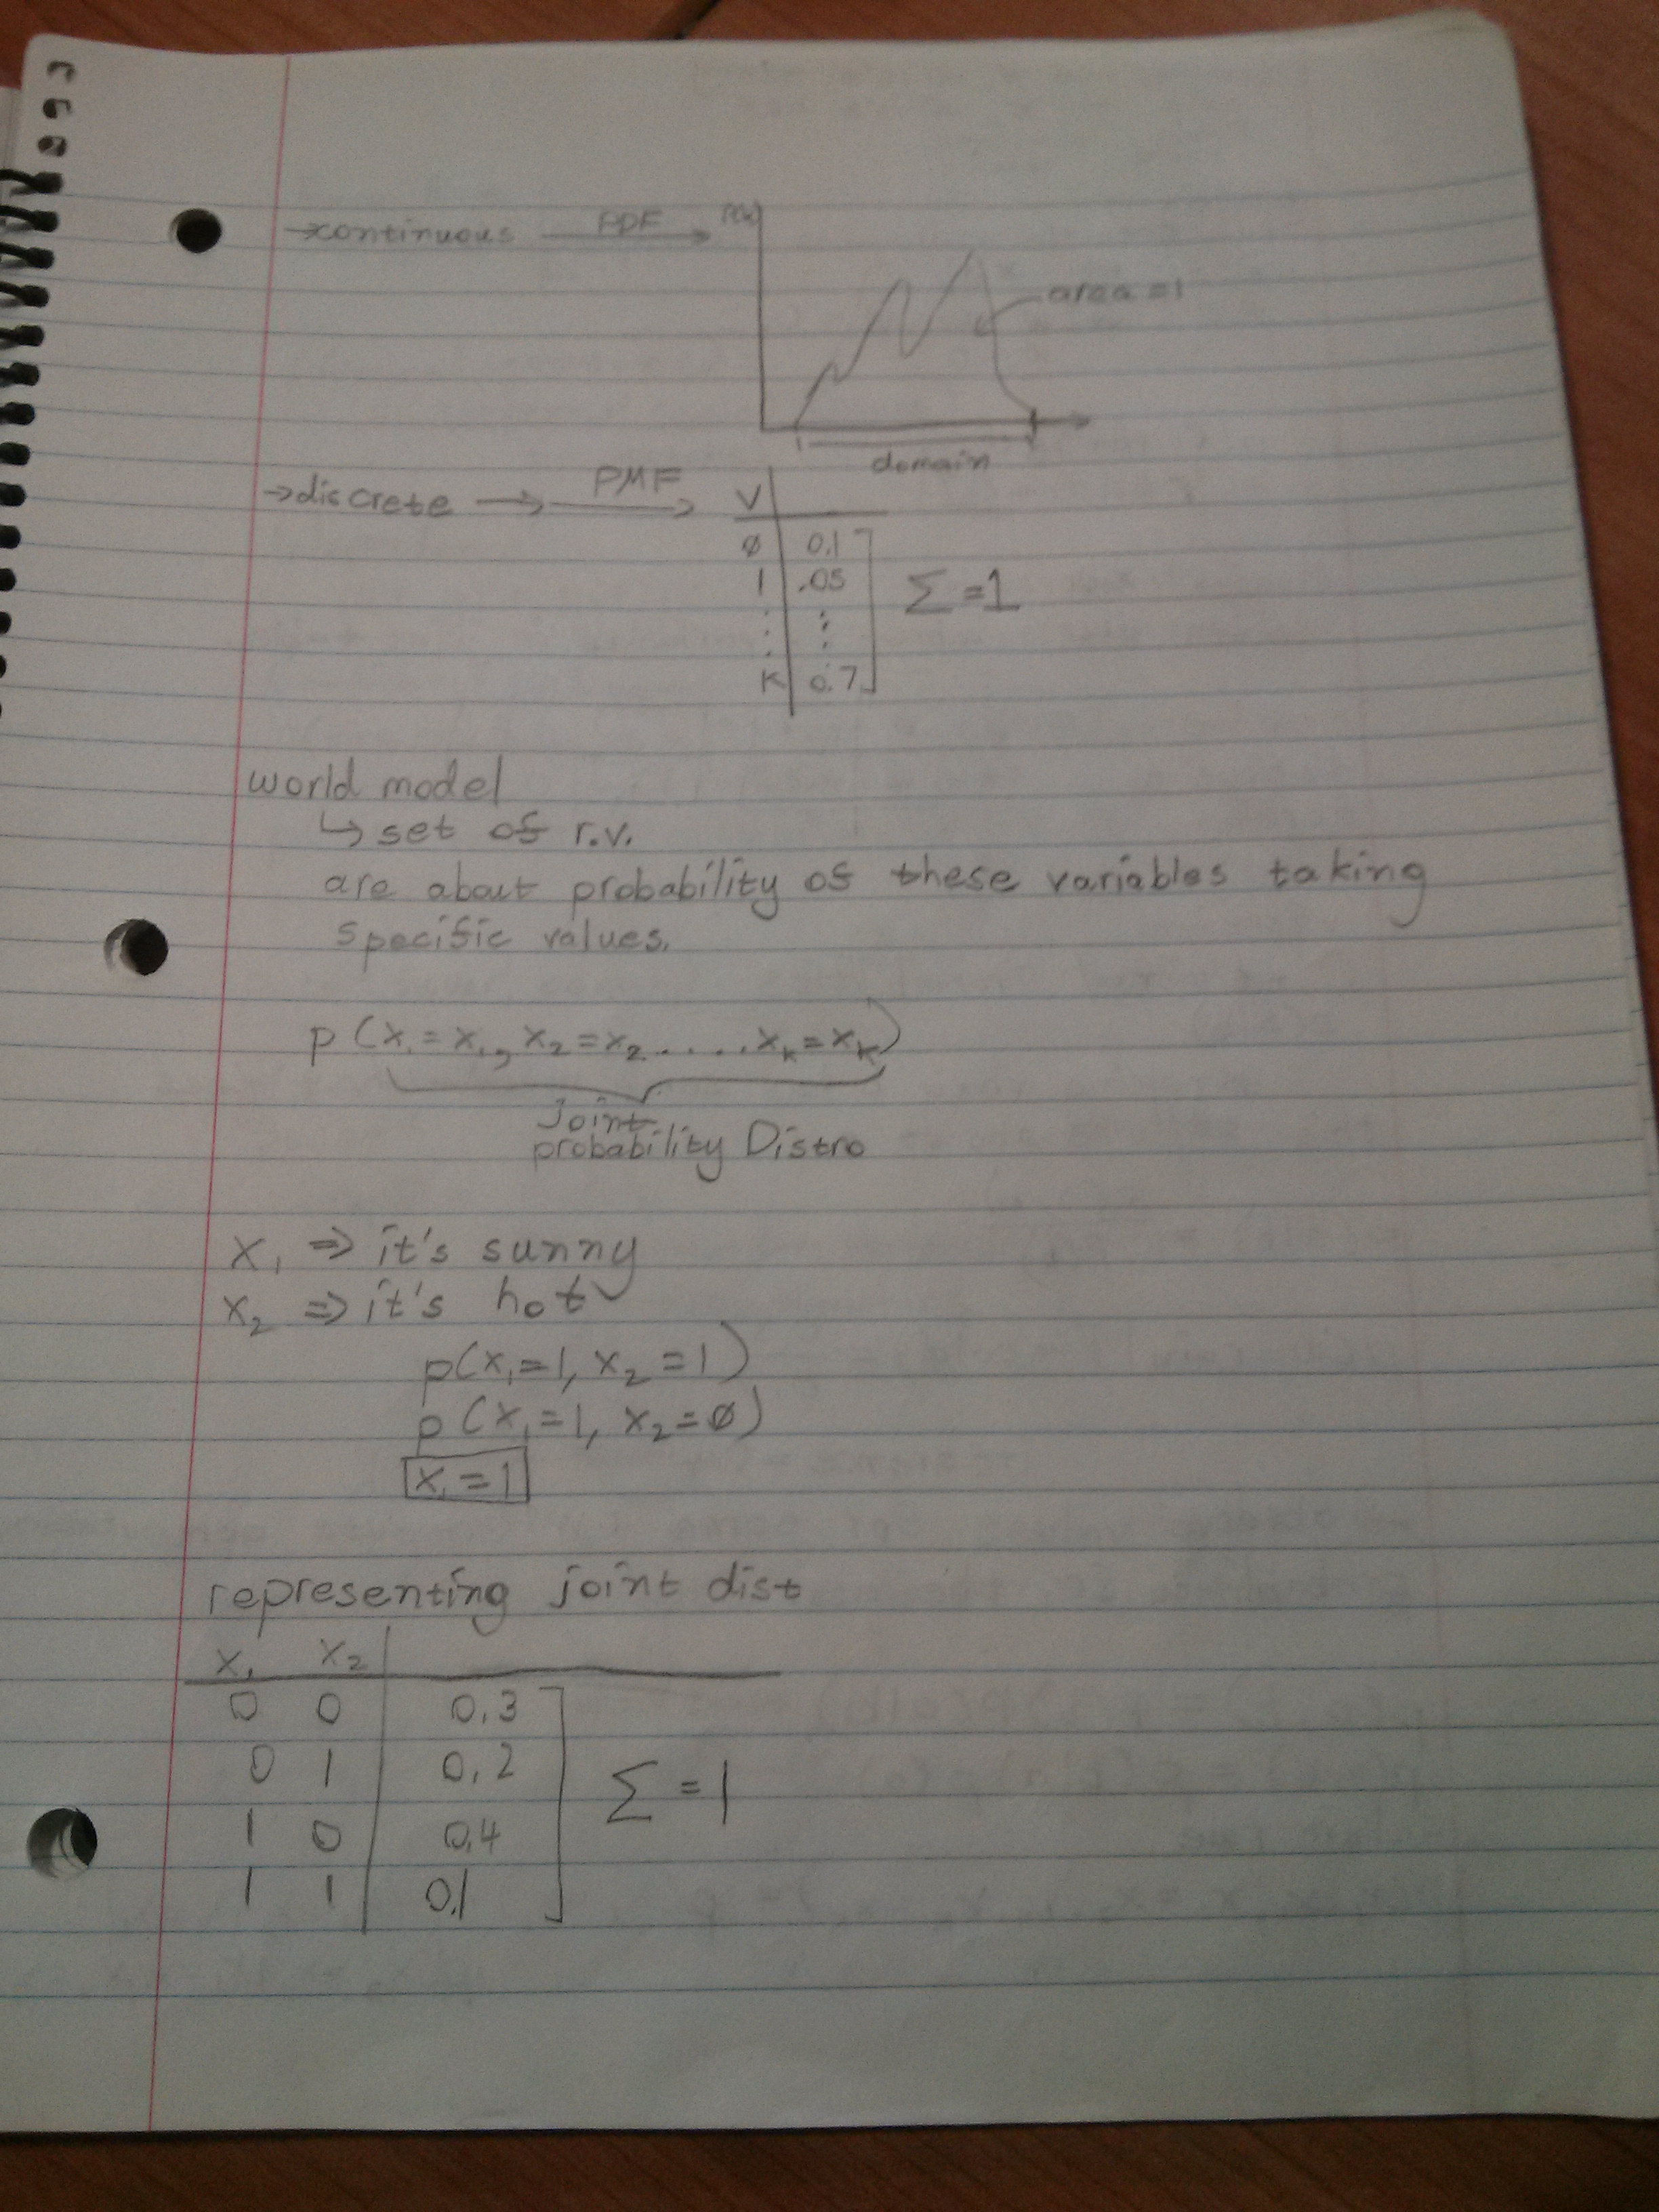 →continuous PDF → P(x)
area =1
domain
→discrete → PMF → V
Ø 0.1
1 .05
Σ =1
⋮ ⋮
K 0.7
world model
↳ set of r.v.
are about probability of these variables taking
specific values.
p (x₁ = x₁, x₂ = x₂ ..... xₖ = xₖ)
Joint
probability Distro
x₁ ⇒ it's sunny
x₂ ⇒ it's hot
p(x₁=1, x₂ =1)
p (x₁=1, x₂=Ø)
x₁ =1
representing joint dist
x₁ x₂
0 0 0.3
0 1 0.2
Σ =1
1 0 0.4
1 1 0.1